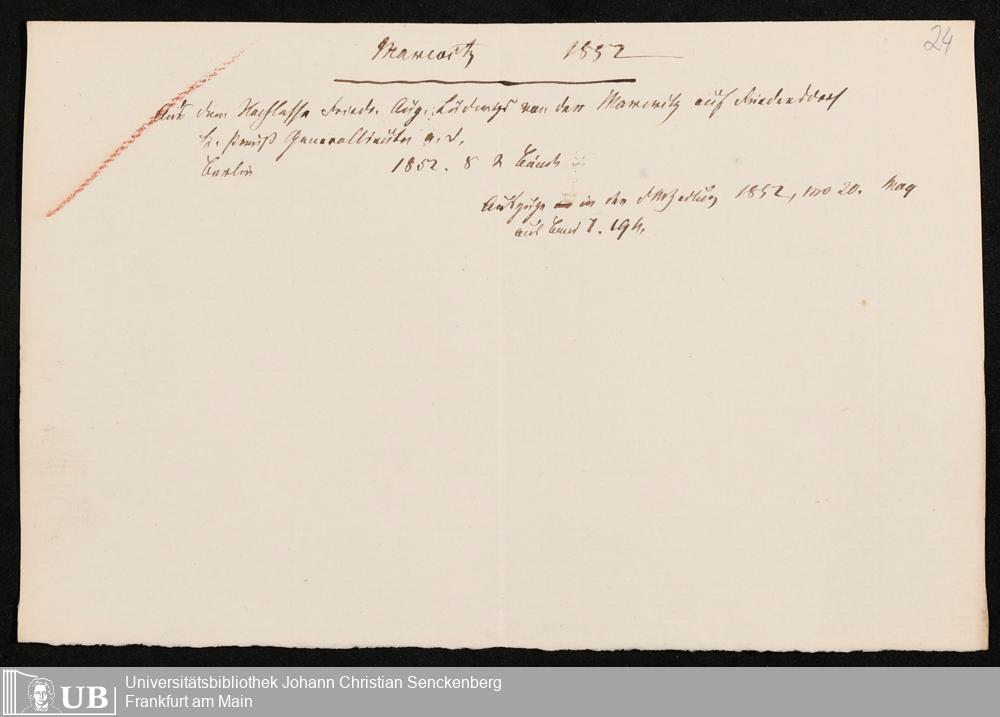 24
Marwitz 1852
Aus dem Nachlasse Friedr. Aug. Ludwigs von der Marwitz auf Friedersdorf
K. Preuß Generallieuten a. D.
Berlin 1852. 8 2 Bände
Auszüge in der Zeitung 1852, no 20. May
aus Band I. 194.
UB Universitätsbibliothek Johann Christian Senckenberg
Frankfurt am Main